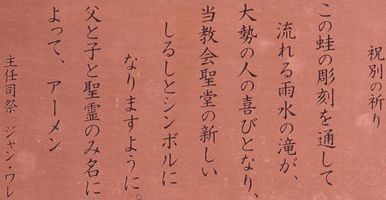 祝別の祈り
この蛙の彫刻を通して
流れる雨水の滝が、
大勢の人の喜びとなり、
当教会聖堂の新しい
しるしとシンボルに
なりますように。
父と子と聖霊のみ名に
よって、アーメン
主任司祭 ジャン・ワレ